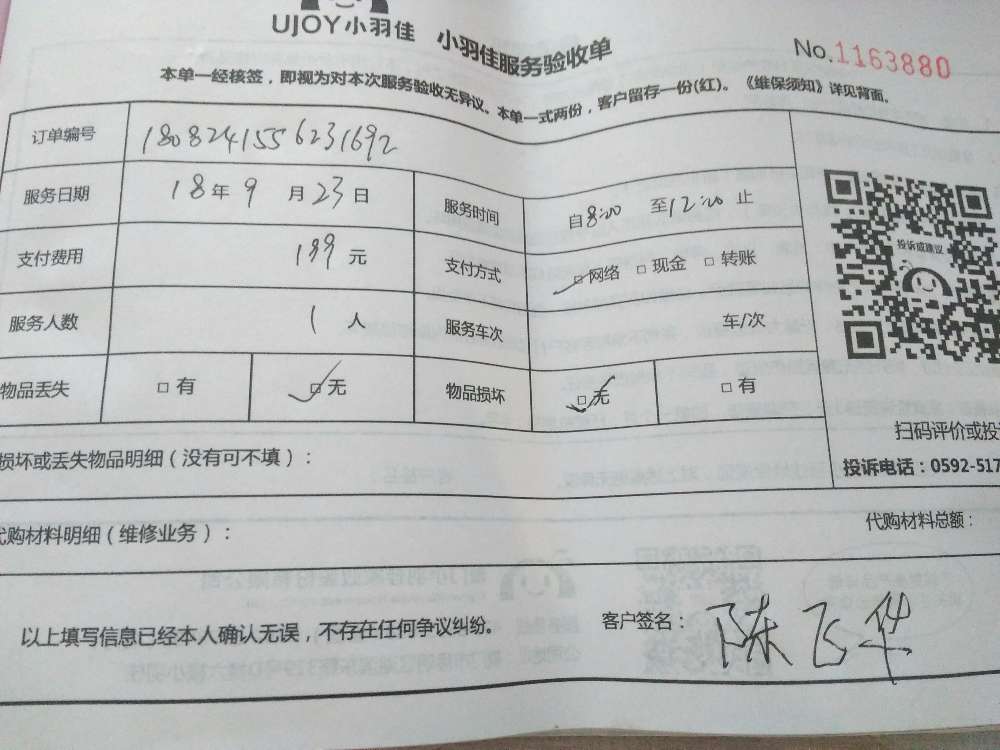 UJOY小羽佳 小羽佳服务验收单 No.1163880
本单一经核签，即视为对本次服务验收无异议。本单一式两份，客户留存一份(红)。《维保须知》详见背面。
订单编号 1808241556231692
服务日期 18年9月23日 服务时间 自8:00 至12:00 止
投诉或建议
支付费用 199元 支付方式 网络 现金 转账
服务人数 1人 服务车次 车/次
物品丢失 有 无 物品损坏 无 有
扫码评价或投
损坏或丢失物品明细（没有可不填）：
投诉电话：0592-517
代购材料明细（维修业务）：
代购材料总额：
以上填写信息已经本人确认无误，不存在任何争议纠纷。 客户签名：陈飞华